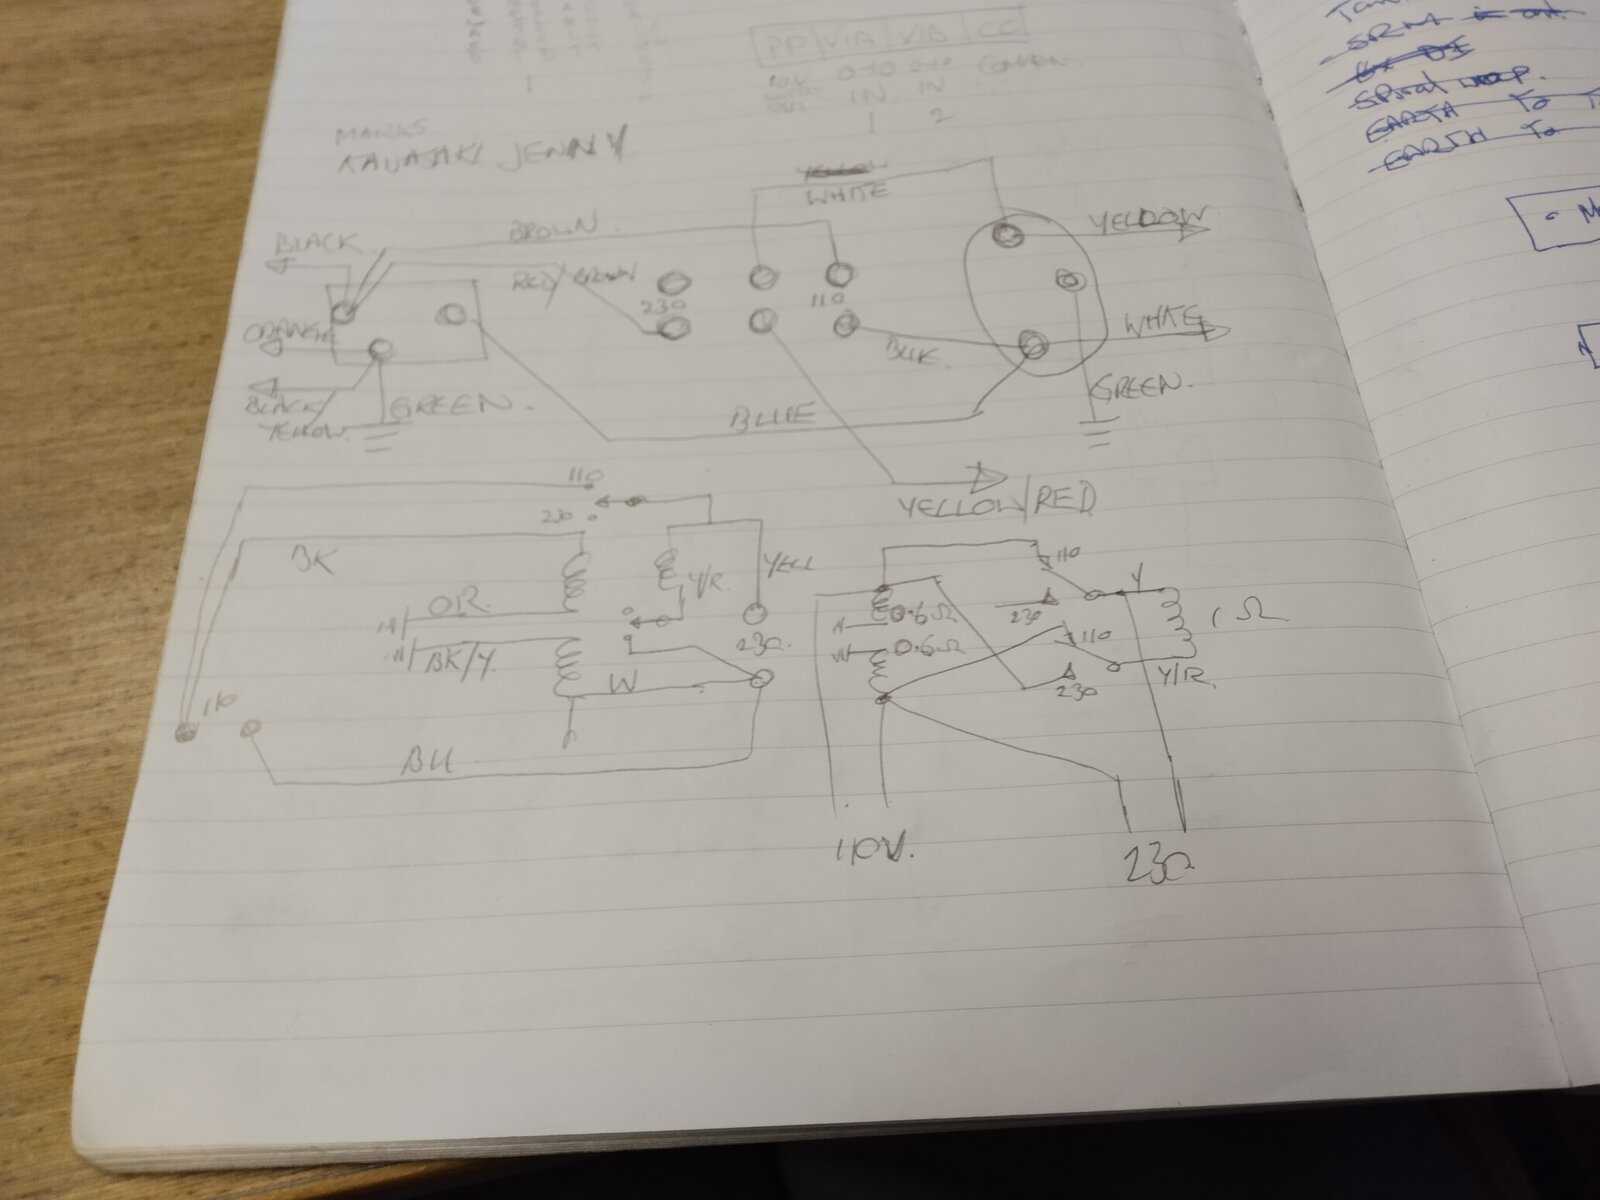 PP VIA VIB CC
0 to 0 to COMMON
IN IN
1 2
MARKS
KAWASAKI JENNY
YELLOW
WHITE
BROWN
BLACK
YELLOW
RED/BROWN
230
110
ORANGE
WHITE
BLK
BLACK/
YELLOW
GREEN
BLUE
GREEN.
YELLOW/RED
110
230
BK
Y/R
YELL
OR.
BK/Y
230
W
110
BU
110
Y
0.6Ω
230
1 Ω
0.6Ω
110
230
Y/R
110V.
230
SRM
Spiral wrap.
EARTH To
EARTH To